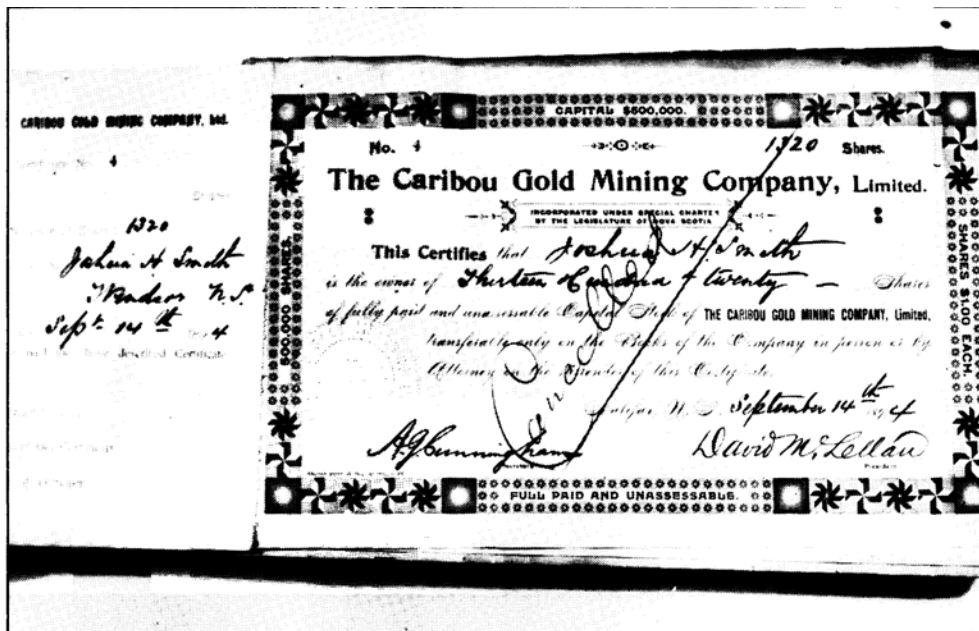 CARIBOU GOLD MINING COMPANY, Ltd.
No. 4
Shares
1320
Joshua H Smith
Windsor N.S.
Sept. 14th 4
described Certificate
CAPITAL $500,000.
No. 4
1320 Shares.
The Caribou Gold Mining Company, Limited.
INCORPORATED UNDER SPECIAL CHARTER
BY THE LEGISLATURE OF NOVA SCOTIA
This Certifies that Joshua H Smith
is the owner of Thirteen Hundred & twenty — Shares
of fully paid and unassessable Capital Stock of THE CARIBOU GOLD MINING COMPANY, Limited,
transferable only on the Books of the Company in person or by
Attorney on the Surrender of this Certificate.
Halifax N. S. September 14th 1894
Cancelled
A.G Cunningham
David McLellan
Secretary
President
FULL PAID AND UNASSESSABLE.
500,000 SHARES.
SHARES $1.00 EACH.